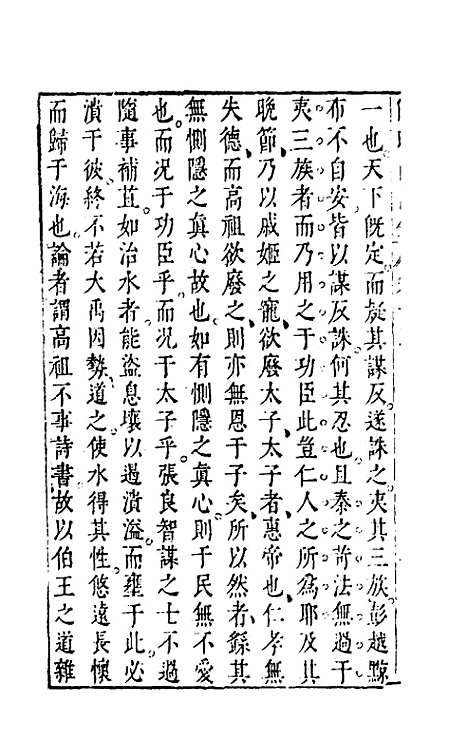 一也天下既定而疑其謀反遂誅之夷其三族彭越黥
布不自安皆以謀反誅何其忍也且秦之苛法無過于
夷三族者而乃用之于功臣此豈仁人之所為耶及其
晚節乃以戚姬之寵欲廢太子太子者惠帝也仁孝無
失德而高祖欲廢之則亦無恩于子矣所以然者繇其
無惻隱之眞心故也如有惻隱之眞心則于民無不愛
也而況于功臣乎而況于太子乎張良智謀之士不過
隨事補苴如治水者能盜息壤以遏潰溢而壅于此必
潰于彼終不若大禹因勢道之使水得其性悠遠長懷
而歸于海也論者謂高祖不事詩書故以伯王之道雜